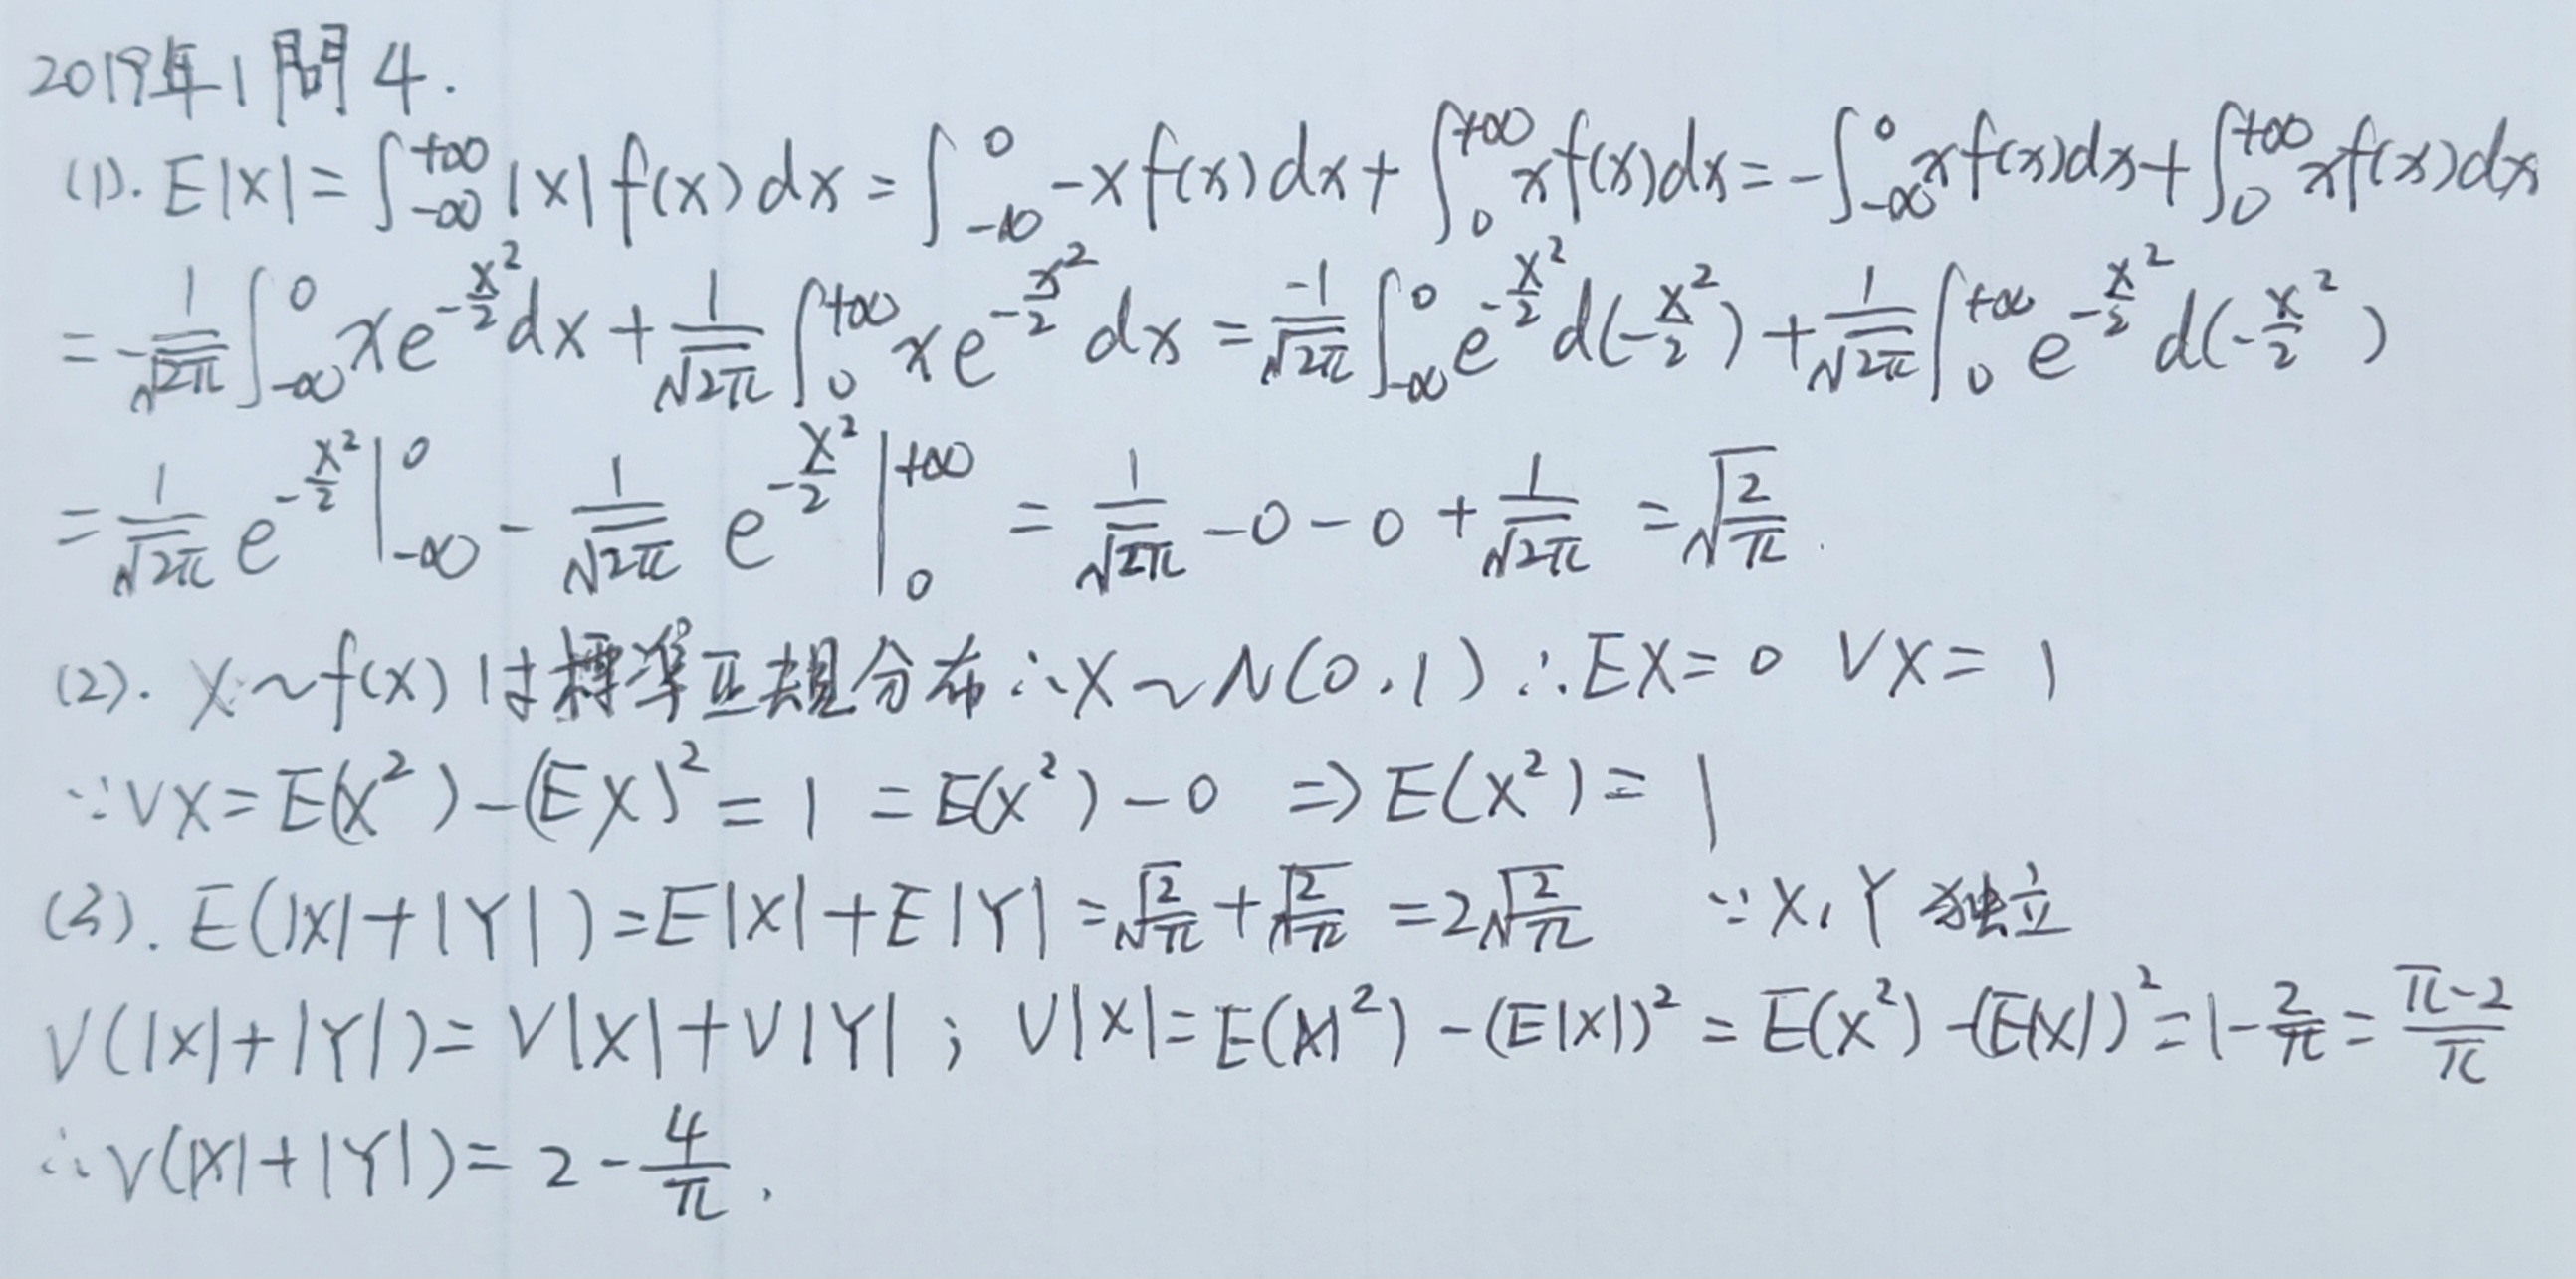 2019年1問4.
(1). E|X| = ∫_{-∞}^{+∞} |x| f(x) dx = ∫_{-∞}^{0} -x f(x) dx + ∫_{0}^{+∞} x f(x) dx = -∫_{-∞}^{0} x f(x) dx + ∫_{0}^{+∞} x f(x) dx
= -\frac{1}{√2π} ∫_{-∞}^{0} x e^{-\frac{x^2}{2}} dx + \frac{1}{√2π} ∫_{0}^{+∞} x e^{-\frac{x^2}{2}} dx = \frac{-1}{√2π} ∫_{-∞}^{0} e^{-\frac{x^2}{2}} d(-\frac{x^2}{2}) + \frac{1}{√2π} ∫_{0}^{+∞} e^{-\frac{x^2}{2}} d(-\frac{x^2}{2})
= \frac{1}{√2π} e^{-\frac{x^2}{2}} |_{-∞}^{0} - \frac{1}{√2π} e^{-\frac{x^2}{2}} |_{0}^{+∞} = \frac{1}{√2π} - 0 - 0 + \frac{1}{√2π} = √\frac{2}{π}.
(2). X ~ f(x) は標準正規分布 ∴ X ~ N(0,1) ∴ EX = 0 VX = 1
∵ VX = E(X^2) - (EX)^2 = 1 = E(X^2) - 0 ⇒ E(X^2) = 1
(3). E(|X| + |Y|) = E|X| + E|Y| = √\frac{2}{π} + √\frac{2}{π} = 2√\frac{2}{π} ∵ X, Y 独立
V(|X| + |Y|) = V|X| + V|Y| ; V|X| = E(|X|^2) - (E|X|)^2 = E(X^2) - (E|X|)^2 = 1 - \frac{2}{π} = \frac{π-2}{π}
∴ V(|X| + |Y|) = 2 - \frac{4}{π}.